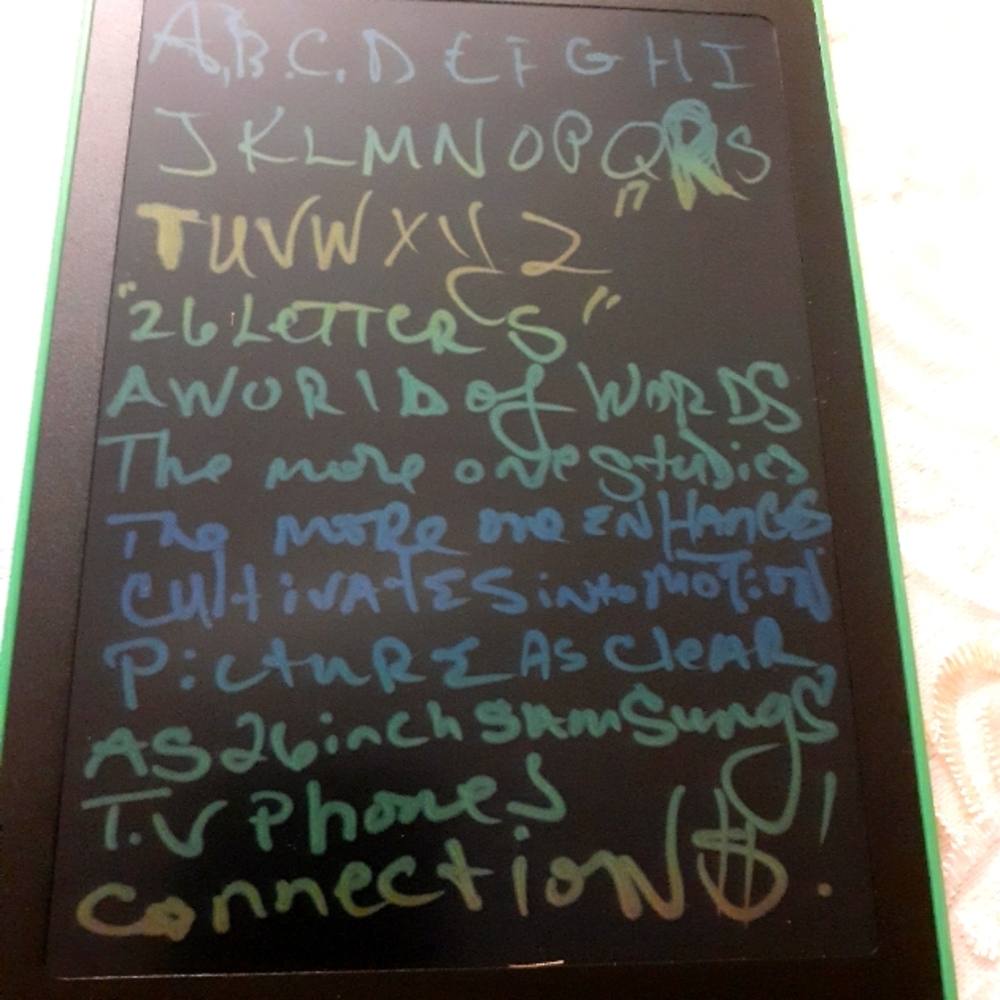 A.B.C.D E F G H I
J K L M N O P Q R S
T U V W X Y Z "
"26 LETTERS"
A WORlD of WORDS
The more one studies
The moRe one ENHANCES
CultivATES into MOTiON
PictuRE As cleAR
AS 26 inch SAmSungS
T.V Phones
connectioN$!